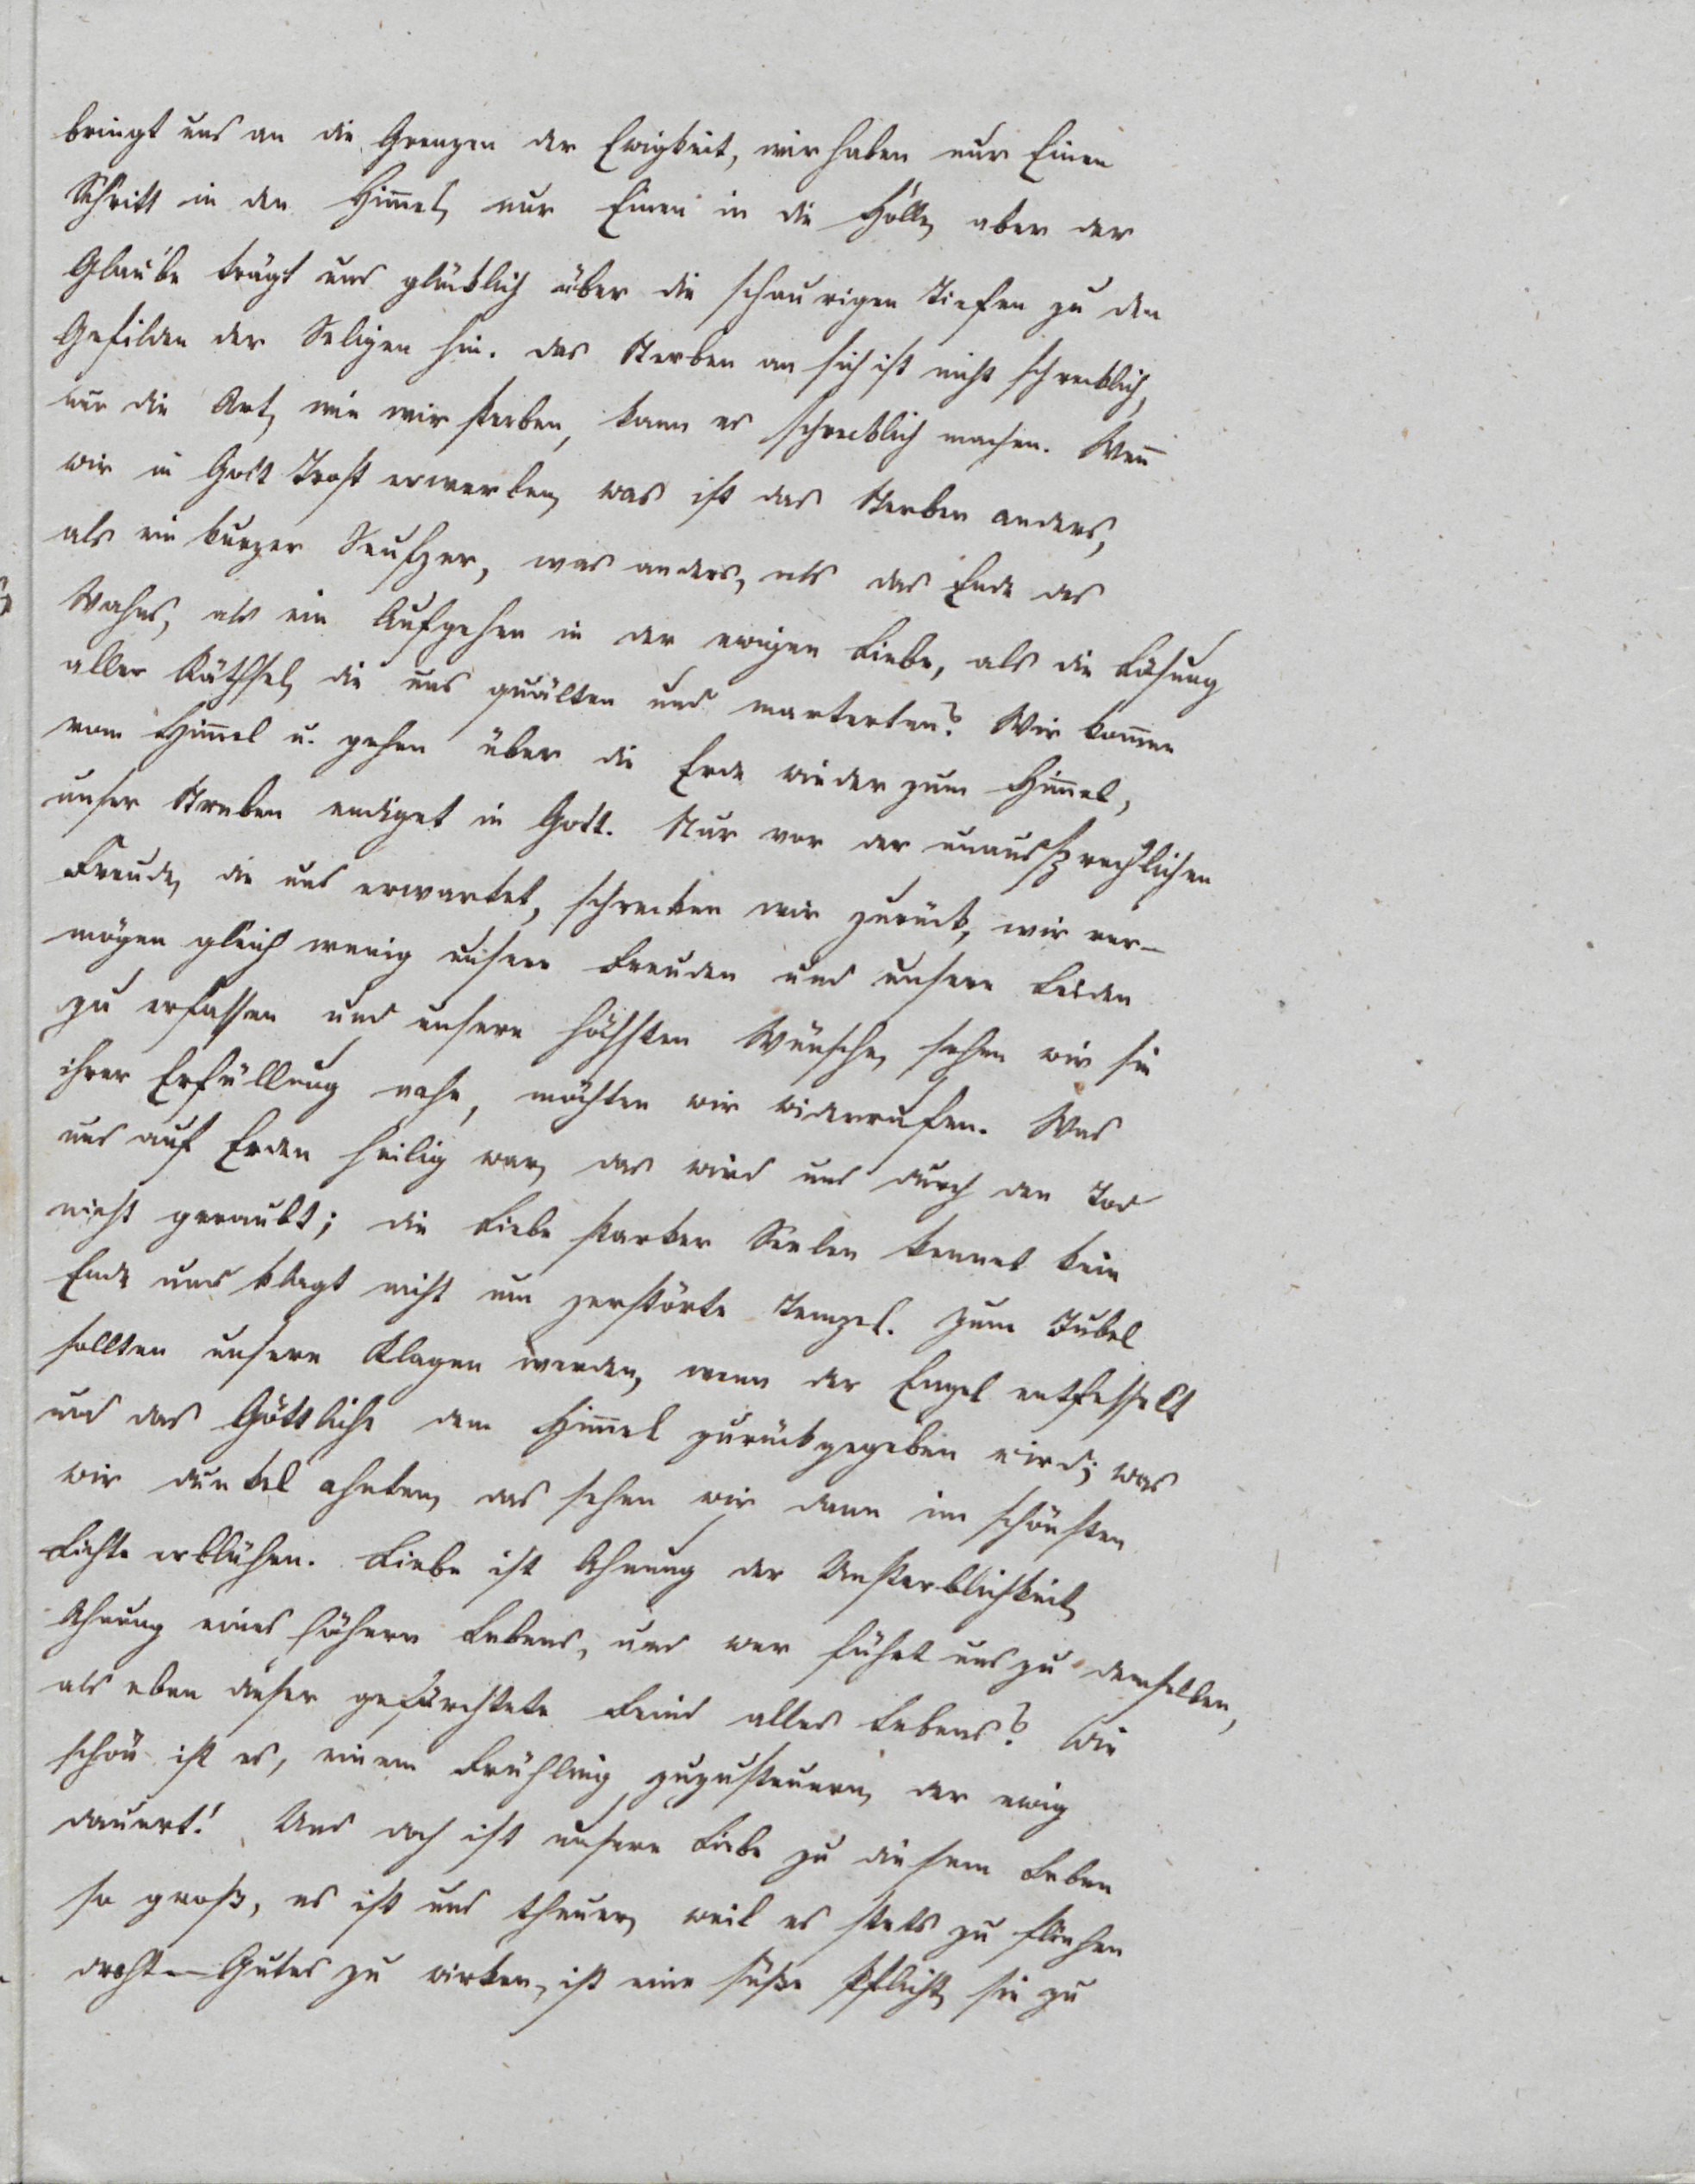 bringt uns an die Grenzen der Ewigkeit, wir haben nur Einen
Schritt in den Him̅el, nur Einen in die Hölle, aber der
Glaube trägt uns glücklich über die schaurigen Tiefen zu den
Gefilden der Seligen hin. das Sterben an sich ist nicht schrecklich,
nur die Art, wie wir sterben, kann es schrecklich machen. Wen̅
wir in Gott Trost erwarben, was ist das Sterben anders,
als ein kurzer Seufzer, was anders, als das Ende des
Wahns, als ein Aufgehen in der ewigen Liebe, als die Lösung
aller Räthsel, die uns quälten und marterten? Wir kom̅en
vom Him̅el u. gehen über die Erde wieder zum Him̅el,
unser Streben endiget in Gott. Nur vor der unaussprechlichen
Freude, die uns erwartet, schrecken wir zurück, wir ver-
mögen gleich wenig unsere Freuden und unsere Leiden
zu erfassen und unsere höchsten Wünsche, sehen wir sie
ihrer Erfüllung nahe, möchten wir widerrufen. Was
uns auf Erden heilig war, das wird uns durch den Tod
nicht geraubt; die Liebe starker Seelen kennet kein
Ende und klagt nicht um zerstörte Tempel. Zum Jubel
sollten unsere Klagen werden, wenn der Engel entfesselt
und das Göttliche dem Him̅el zurückgegeben wird; was
wir dunkel ahnten, das sehen wir dann im schönsten
Lichte erblühen. Liebe ist Ahnung der Unsterblichkeit,
Ahnung eines höhern Lebens, und wer führt uns zu demselben,
als eben dieser gefürchtete Feind alles Lebens? Wie
schön ist es, einem Frühling zuzusteuern, der ewig
dauert! Und doch ist unsere Liebe zu diesem Leben
so groß, es ist uns theuer, weil es stets zu fliehen
droht – Gutes zu wirken, ist eine süße Pflicht, sie zu